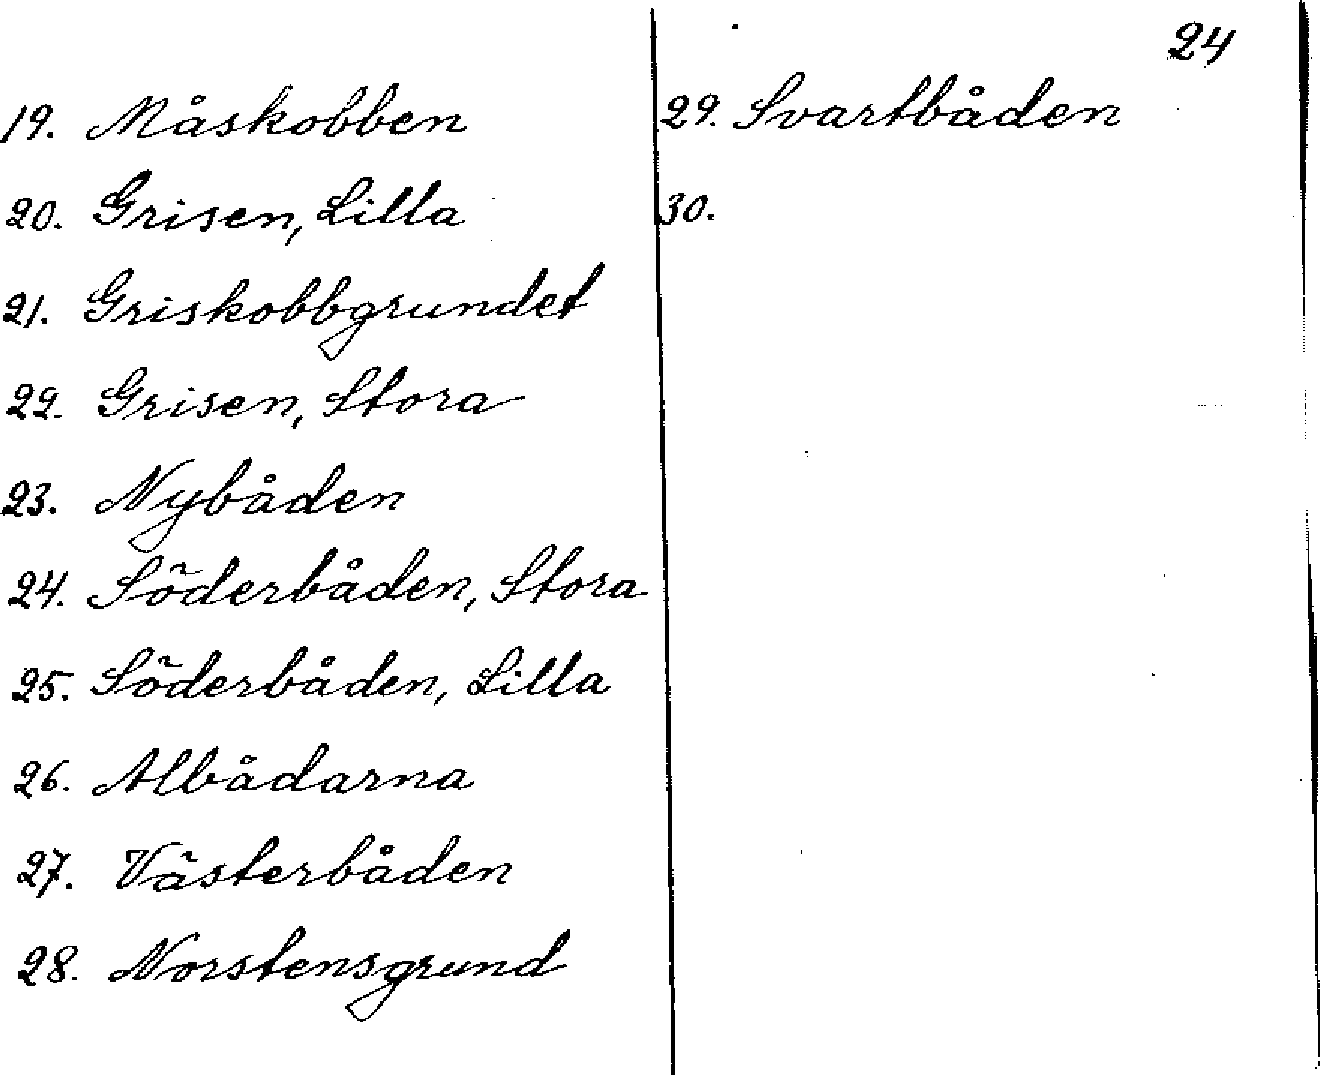 24
19. Måskobben
20. Grisen, Lilla
21. Griskobbgrundet
22. Grisen, Stora
23. Nybåden
24. Söderbåden, Stora
25. Söderbåden, Lilla
26. Albådarna
27. Västerbåden
28. Norstensgrund
29. Svartbåden
30.